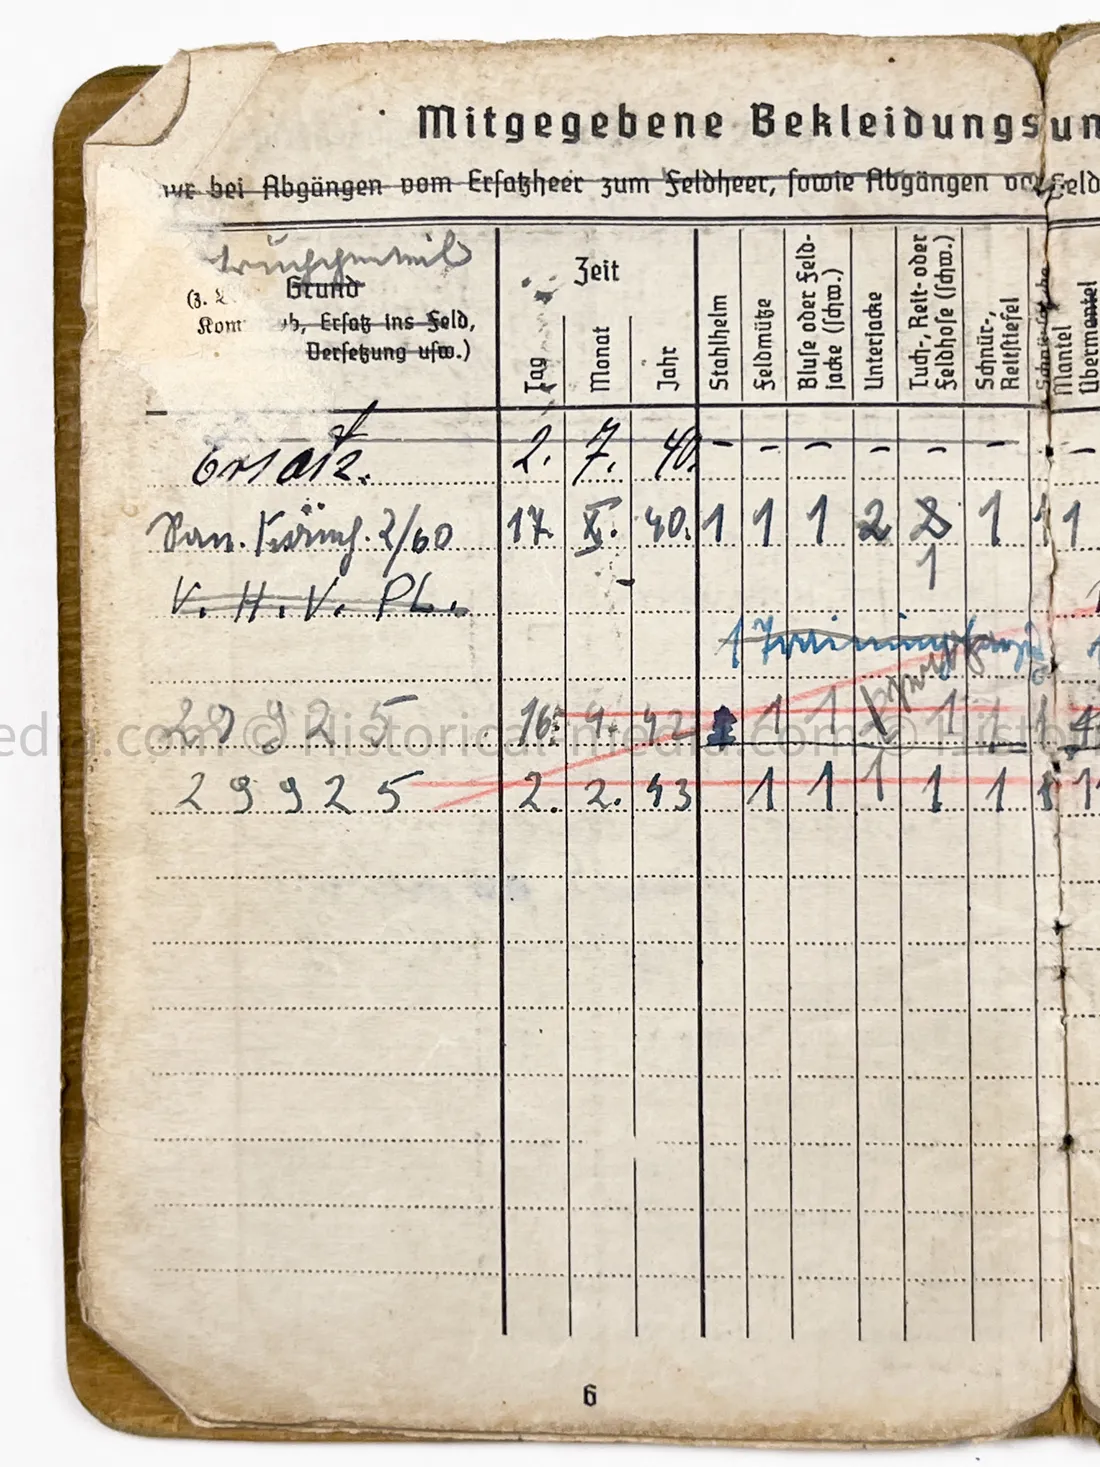 Mitgegebene Bekleidungs
bei Abgängen vom Ersatzheer zum Feldheer, sowie Abgängen
Grund
(z.
b, Ersatz ins Feld,
Versetzung usw.)
Zeit
Tag
Monat
Jahr
Stahlhelm
Feldmütze
Bluse oder Feld-
jacke (schw.)
Unterjacke
Tuch-, Reit- oder
Feldhose (schw.)
Schnür-,
Reitstiefel
Mantel
Übermantel
Ersatz. 2. 7. 40. – – – – – – –
San. 2/60 17. X. 40. 1 1 1 2 2 1 1 1
1
V. H. V. Pl. –
1
29925 16. 4. 42 1 1 1 1 1 1 1
29925 2. 2. 43 1 1 1 1 1 1 11
6
© Historical-media.com © Histo